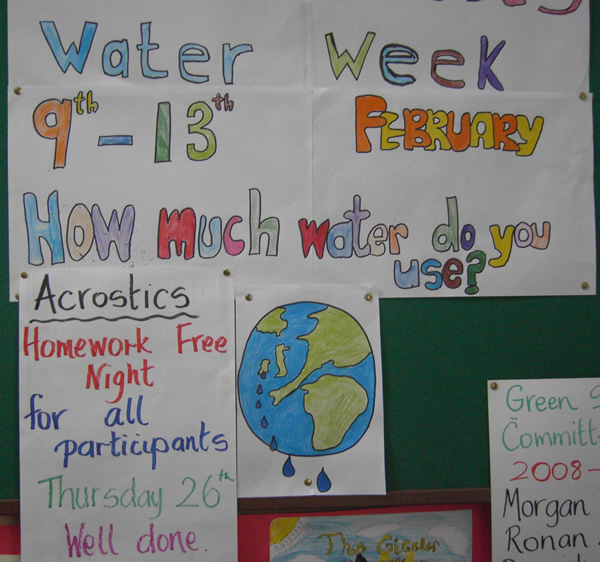 Water Week
9th - 13th FEBRUARY
How much water do you use?
Acrostics
Homework Free
Night
for all
participants
Thursday 26th
Well done.
Green
Committ
2008-
Morgan
Ronan
The Giggler